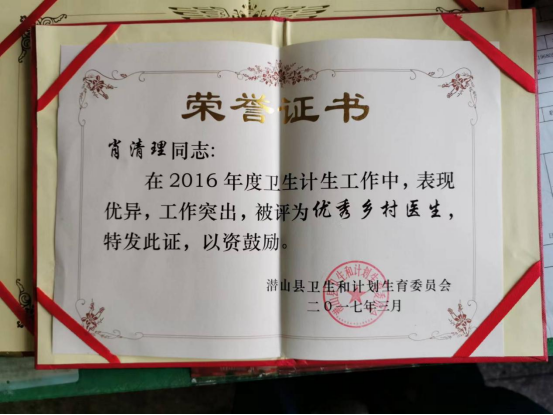 荣誉证书
肖清理同志:
在2016年度卫生计生工作中,表现
优异,工作突出,被评为优秀乡村医生,
特发此证,以资鼓励。
潜山县卫生和计划生育委员会
二〇一七年三月